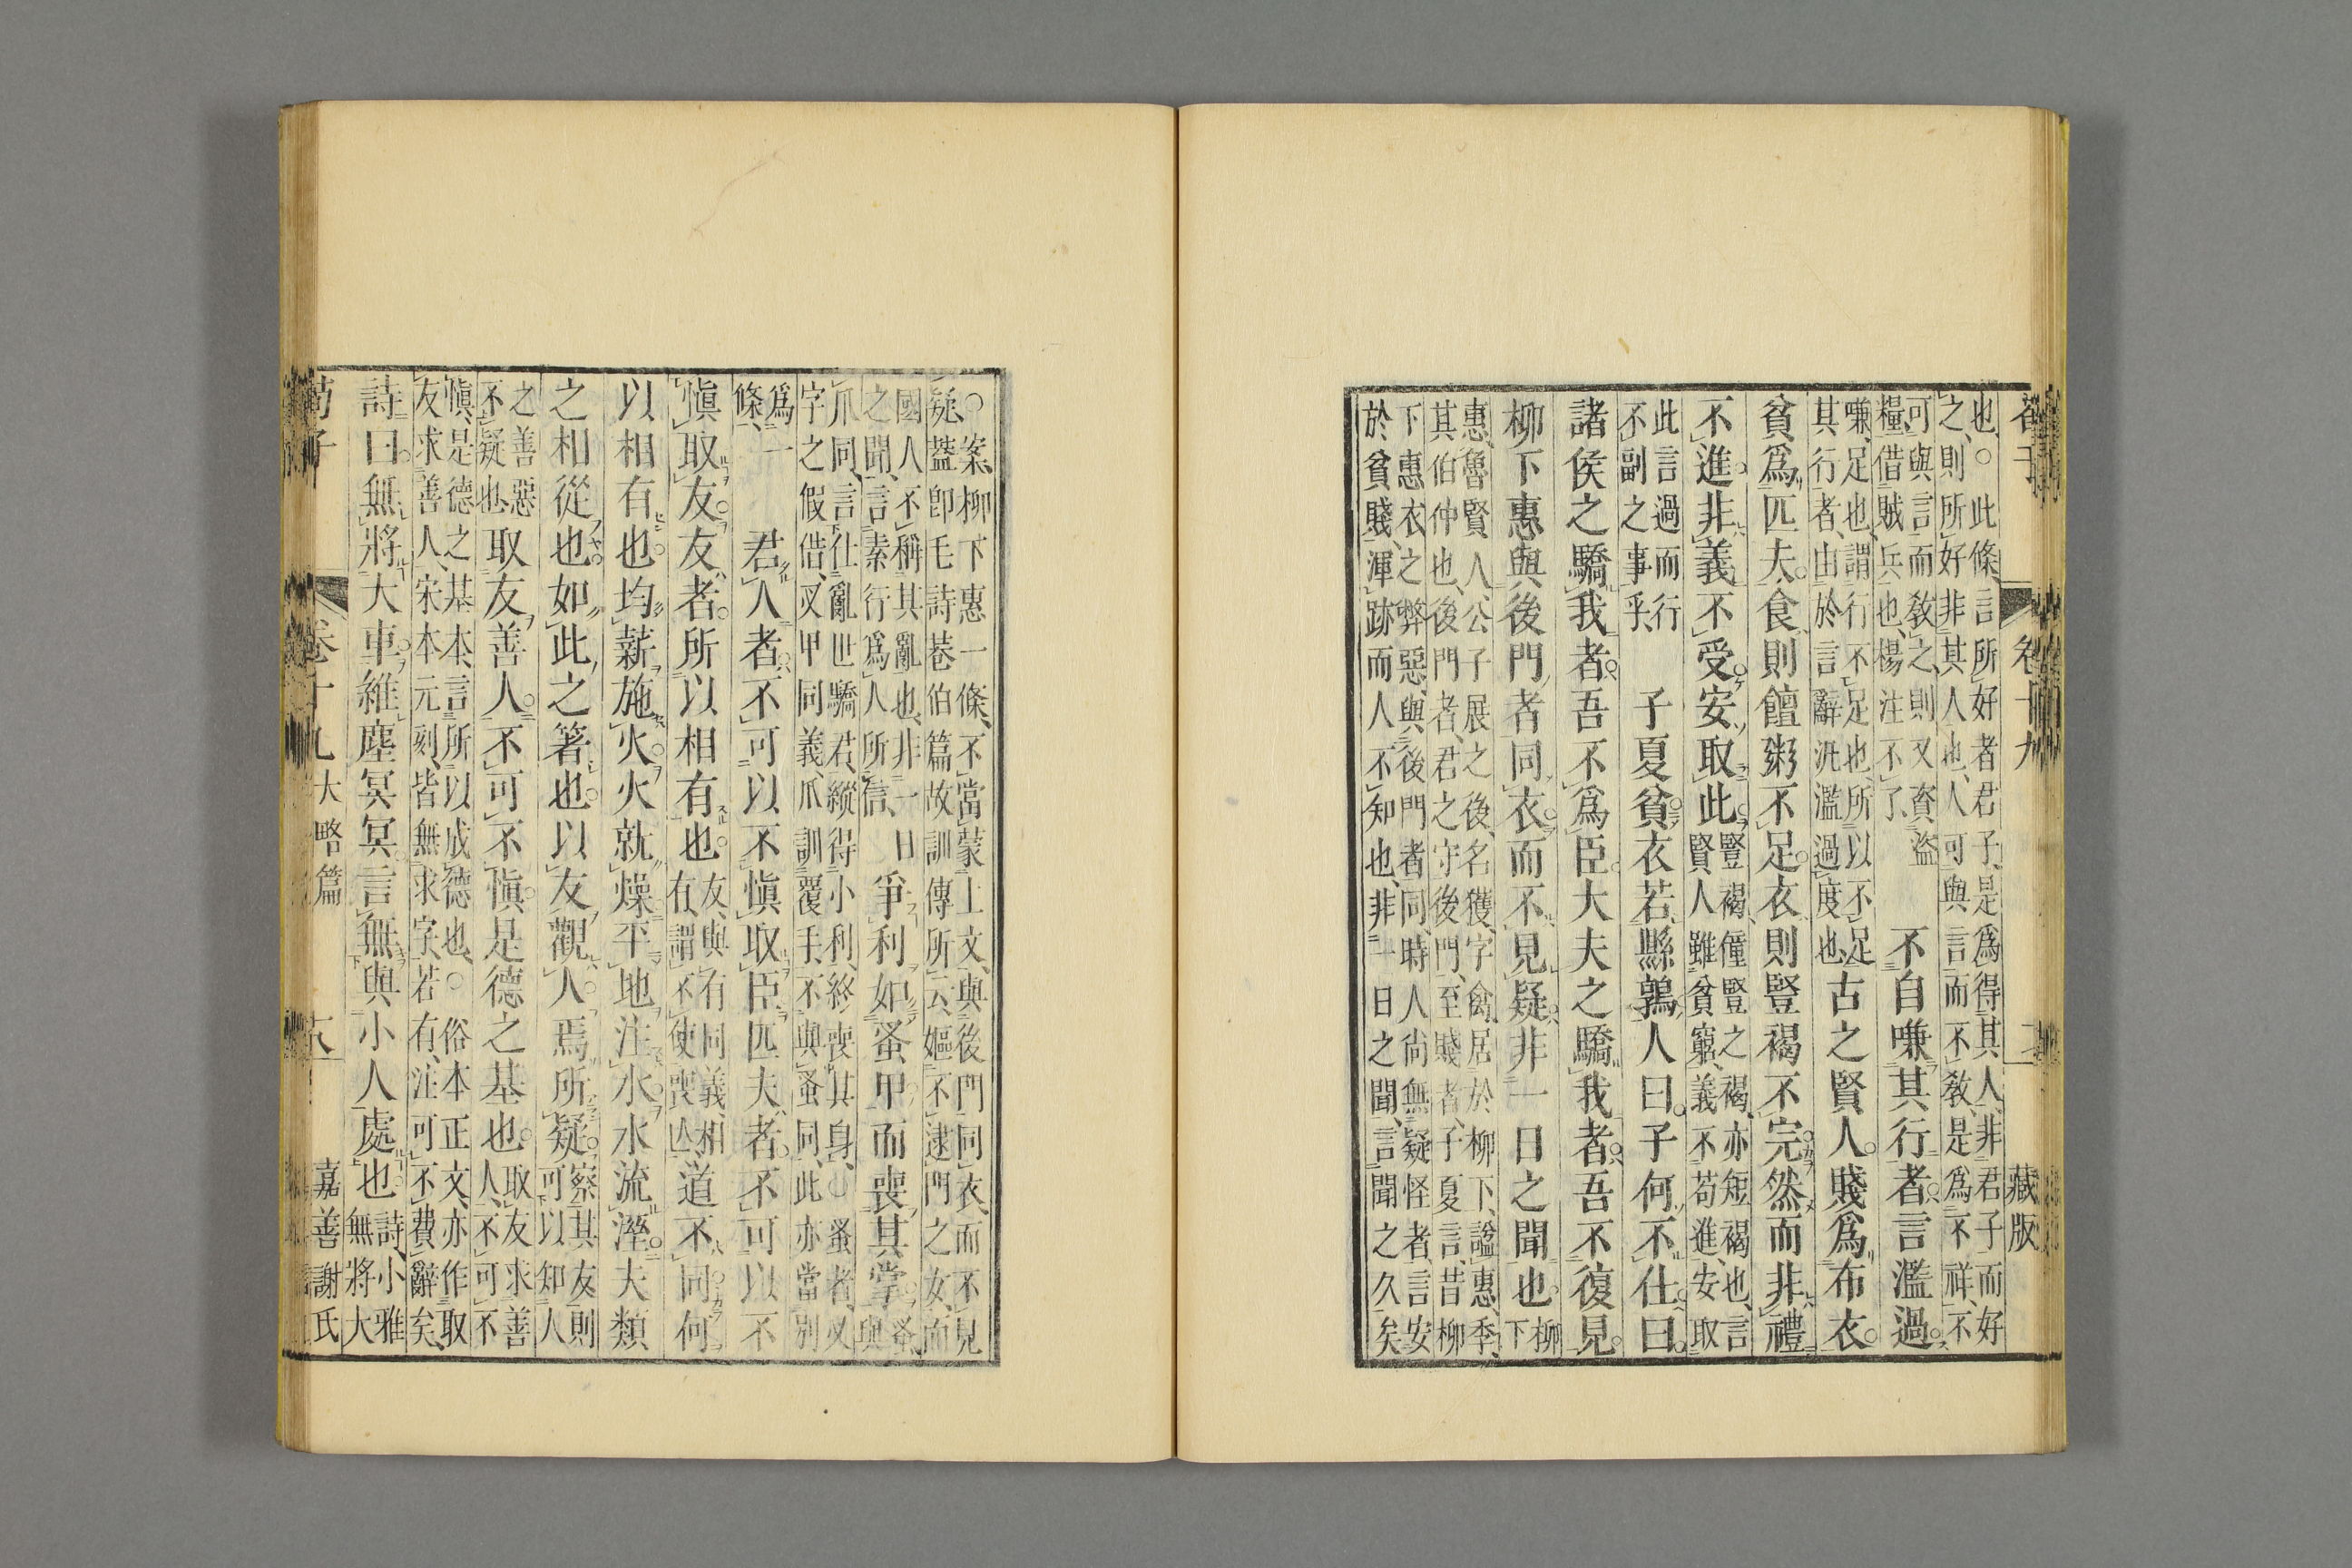 卷十九 藏版
也、○此條、言所好者君子、是爲得其人、非君子而好
之、則所好非其人也、人可與言而不教、是爲不祥、不
可與言而教之、則又齎盜
糧借賊兵也、楊注不了、
不自嗛其行者。言濫過。
嗛、足也、謂行不足也、所以不足
其行者、由於言辭汎濫過度也、
古之賢人。賤爲布衣。
貧爲匹夫。食則饘粥不足。衣則豎褐不完。然而非禮
不進。非義不受。安取此。
豎褐、僮豎之褐、亦短褐也、言
賢人雖貧窮、義不苟進、安取
此言過而行
不副之事乎、
子夏貧。衣若縣鶉。人曰。子何不仕。曰。
諸侯之驕我者。吾不爲臣。大夫之驕我者。吾不復見。
柳下惠與後門者同衣。而不見疑。非一日之聞也。
柳
下
惠、魯賢人、公子展之後、名獲、字禽、居於柳下、謚惠、季、
其伯仲也、後門者、君之守後門、至賤者、子夏言、昔柳
下惠衣之弊惡、與後門者同、時人尚無疑怪者、言安
於貧賤、渾跡而人不知也、非一日之聞、言聞之久矣
○案、柳下惠一條、不當蒙上文、與後門同衣、而不見
疑、蓋卽毛詩巷伯篇故訓傳所云、嫗不逮門之女、而
國人不稱其亂也、非一日
之聞、言素行爲人所信、
爭利如蚤甲。而喪其掌。
蚤、
與
爪同、言仕亂世驕君、縱得小利、終喪其身、○蚤者、叉
字之假借、叉甲同義、爪訓覆手、不與蚤同、此亦當別
爲一
條、
君人者。不可以不愼取臣。匹夫者。不可以不
愼取友。友者。所以相有也。
友、與有同義、相
有、謂不使喪亾、
道不同。何
以相有也。均薪施火。火就燥。平地注水。水流溼。夫類
之相從也。如此之箸也。以友觀人。焉所疑。
察其友則
可以知人
之善惡
不疑也、
取友善人。不可不愼。是德之基也。
取友求善
人、不可不
愼、是德之基本、言所以成德也、○俗本正文、亦作取
友求善人、宋本元刻、皆無求字、若有、注可不費辭矣、
詩曰。無將大車。維塵冥冥。言無與小人處也。
詩、小雅
無將大
荀子 卷十九 大略篇 十八 嘉善謝氏